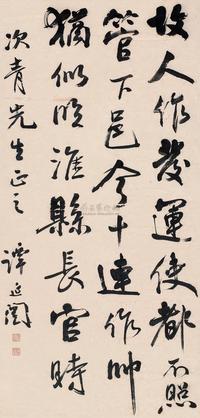 故人作發運使都不照
管下邑令十連作帥
猶似臨淮縣長官時
次青先生正之
譚延闓